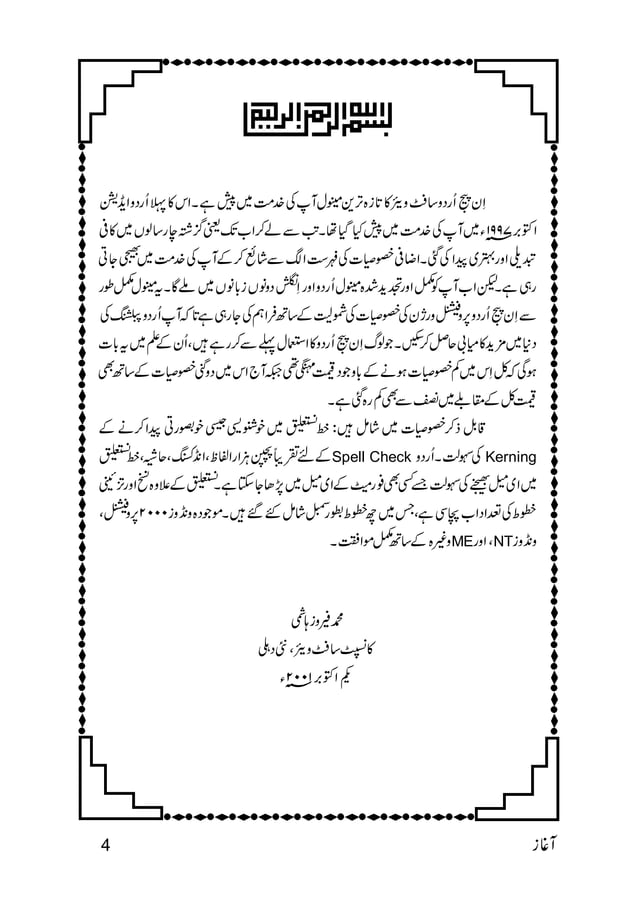 بسم اللہ الرحمن الرحیم
اِن پیج اُردو سافٹ ویئر کا تازہ ترین مینول آپ کی خدمت میں پیش ہے۔ اس کا پہلا اُردو ایڈیشن
اکتوبر ۱۹۹۷ء میں آپ کی خدمت میں پیش کیا گیا تھا۔ تب سے لے کر اب تک یعنی گزشتہ چار سالوں میں کافی
تبدیلی اور بہتری پیدا کی گئی۔ اضافی خصوصیات کی فہرست الگ سے شائع کر کے آپ کی خدمت میں بھیجی جاتی
رہی ہے۔ لیکن اب آپ کو مکمل اور تجدید شدہ مینول اُردو اور انگلش دونوں زبانوں میں ملے گا۔ یہ مینول مکمل طور
سے اِن پیج اُردو پروفیشنل ورژن کی خصوصیات کی شمولیت کے ساتھ فراہم کی جارہی ہے تاکہ آپ اُردو پبلشنگ کی
دنیا میں مزید کامیابی حاصل کرسکیں۔ جو لوگ اِن پیج اُردو کا استعمال پہلے سے کر رہے ہیں، اُن کے علم میں یہ بات
ہوگی کہ کل اِس میں کم خصوصیات ہونے کے باوجود قیمت مہنگی تھی جبکہ آج اس میں دوگنی خصوصیات کے ساتھ بھی
قیمت کل کے مقابلے میں نصف سے بھی کم رہ گئی ہے۔
قابل ذکر خصوصیات میں شامل ہیں: خط نستعلیق میں خوشنویسی جیسی خوبصورتی پیدا کرنے کے
Kerning کی سہولت۔ اُردو Spell Check کے لئے تقریباً پچپن ہزار الفاظ، انڈکسنگ، حاشیہ، خط نستعلیق
میں ای میل بھیجنے کی سہولت جسے کسی بھی فورمیٹ کے ای میل میں پڑھا جاسکتا ہے۔ نستعلیق کے علاوہ نسخ اور تزئینی
خطوط کی تعداد اب پچاسی ہے، جس میں چھ خطوط بطور سمبل شامل کئے گئے ہیں۔ موجودہ ونڈوز ۲۰۰۰ پروفیشنل،
ونڈوز NT، اور ME وغیرہ کے ساتھ مکمل موافقت۔
محمد فیروز ہاشمی
کانسپٹ سافٹ ویئر، نئی دہلی
یکم اکتوبر ۲۰۰۱ء
آغاز 4